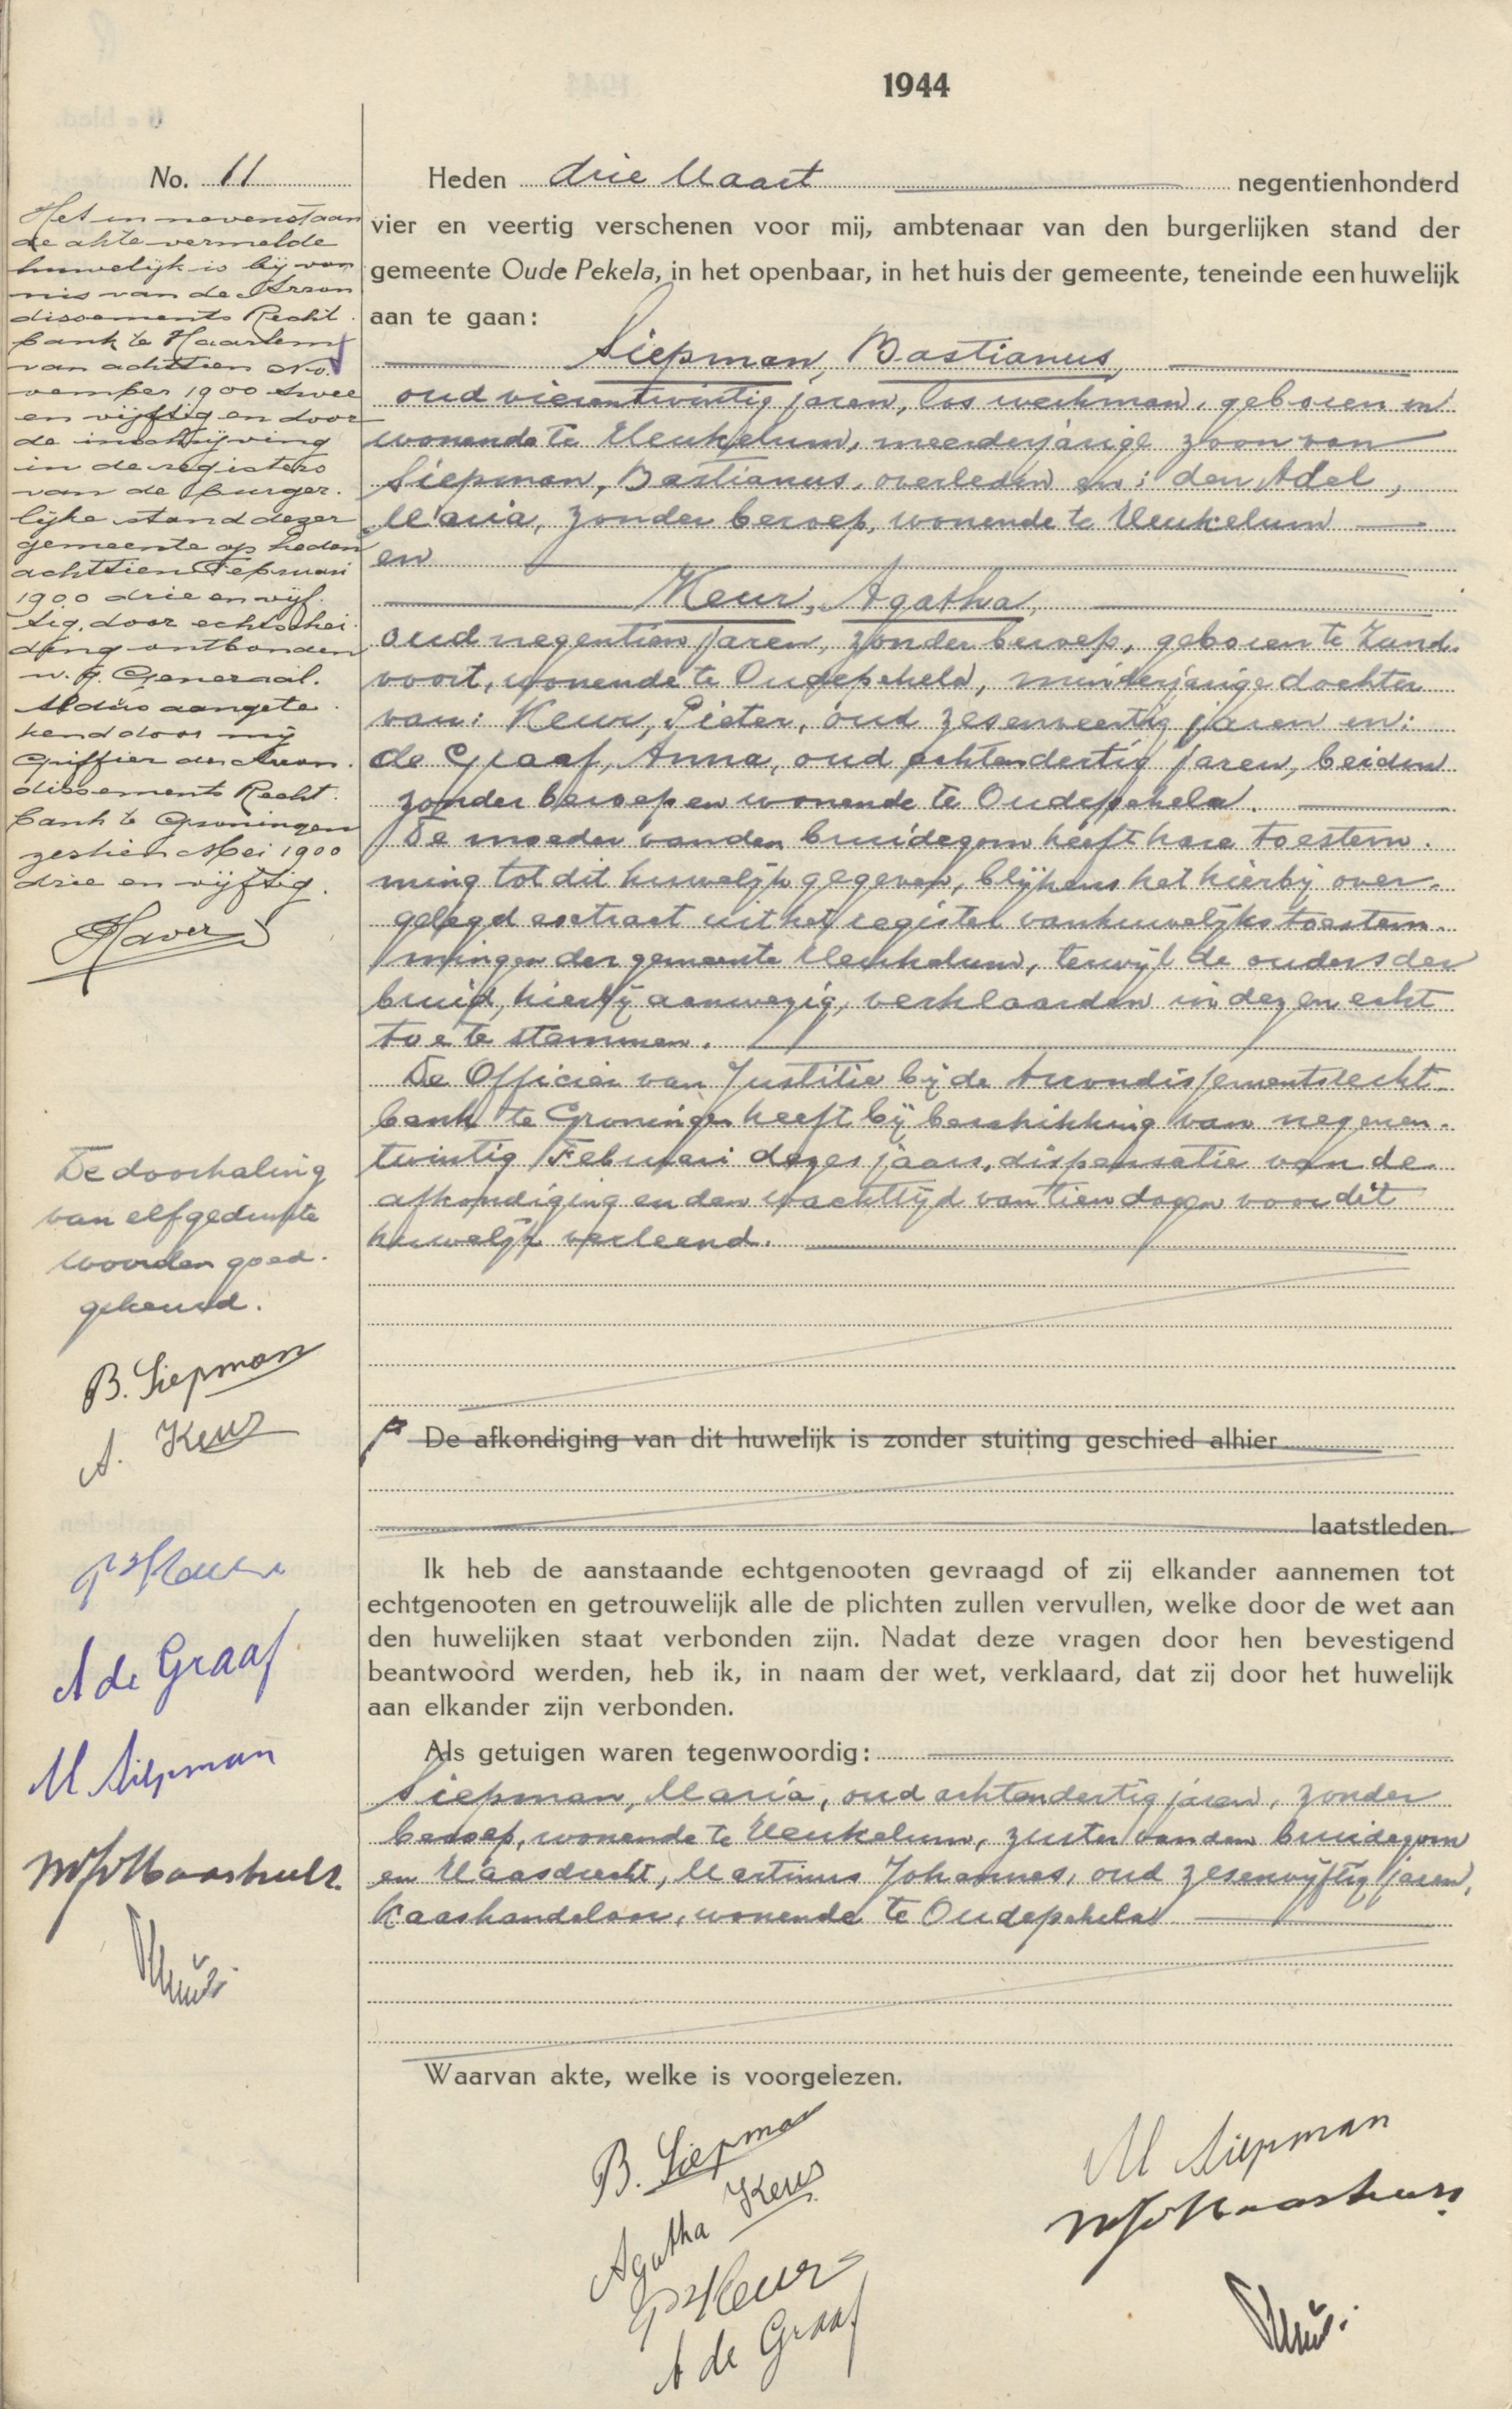 1944
No. 11
Het in nevenstaan
de akte vermelde
huwelijk is bij von
nis van de Arron
dissements Recht.
bank te Haarlem
van achttien No.
vember 1900 twee
en vijftig en door
de inschrijving
in de registers
van de Burger.
lijke stand dezer
gemeente op heden
achttien Februari
1900 drie en vijf.
tig, door echtschei.
ding ontbonden
w. g. Generaal.
Aldus aangete.
kend door mij
Griffier der Arron.
dissements Recht.
bank te Groningen
zestien Mei 1900
drie en vijftig.
Haver
De doorhaling
van elf gedrukte
woorden goed-
gekeurd.
B. Siepman
A. Keur
P Keur
A de Graaf
M Siepman
Heden drie Maart negentienhonderd
vier en veertig verschenen voor mij, ambtenaar van den burgerlijken stand der
gemeente Oude Pekela, in het openbaar, in het huis der gemeente, teneinde een huwelijk
aan te gaan:
Siepman, Bastianus,
oud vierentwintig jaren, los werkman, geboren en
wonende te Heukelum, meerderjarige zoon van
Siepman, Bastianus, overleden en: den Adel,
Maria, zonder beroep, wonende te Heukelum
en
Keur, Agatha,
oud negentien jaren, zonder beroep, geboren te Zand-
voort, wonende te Oudepekela, minderjarige dochter
van: Keur, Pieter, oud zesenveertig jaren en:
de Graaf, Anna, oud achtendertig jaren, beiden
zonder beroep en wonende te Oudepekela.
De moeder van den bruidegom heeft hare toestem-
ming tot dit huwelijk gegeven, blijkens het hierbij over-
gelegd extract uit het register van huwelijkstoestem-
mingen der gemeente Heukelum, terwijl de ouders der
bruid, hierbij aanwezig, verklaarden in dezen echt
toe te stemmen.
De Officier van Justitie bij de Arrondissementsrecht-
bank te Groningen heeft bij beschikking van negenen-
twintig Februari dezes jaars, dispensatie van de
afkondiging en den wachttijd van tien dagen voor dit
huwelijk verleend.
De afkondiging van dit huwelijk is zonder stuiting geschied alhier
laatstleden.
Ik heb de aanstaande echtgenooten gevraagd of zij elkander aannemen tot
echtgenooten en getrouwelijk alle de plichten zullen vervullen, welke door de wet aan
den huwelijken staat verbonden zijn. Nadat deze vragen door hen bevestigend
beantwoord werden, heb ik, in naam der wet, verklaard, dat zij door het huwelijk
aan elkander zijn verbonden.
Als getuigen waren tegenwoordig:
Siepman, Maria, oud achtendertig jaren, zonder
beroep, wonende te Heukelum, zuster van den bruidegom
en Maasdrecht, Martinus Johannes, oud zesenvijftig jaren,
kaashandelaar, wonende te Oudepekela
Waarvan akte, welke is voorgelezen.
B. Siepman
Agatha Keur
P Keur
A de Graaf
M Siepman